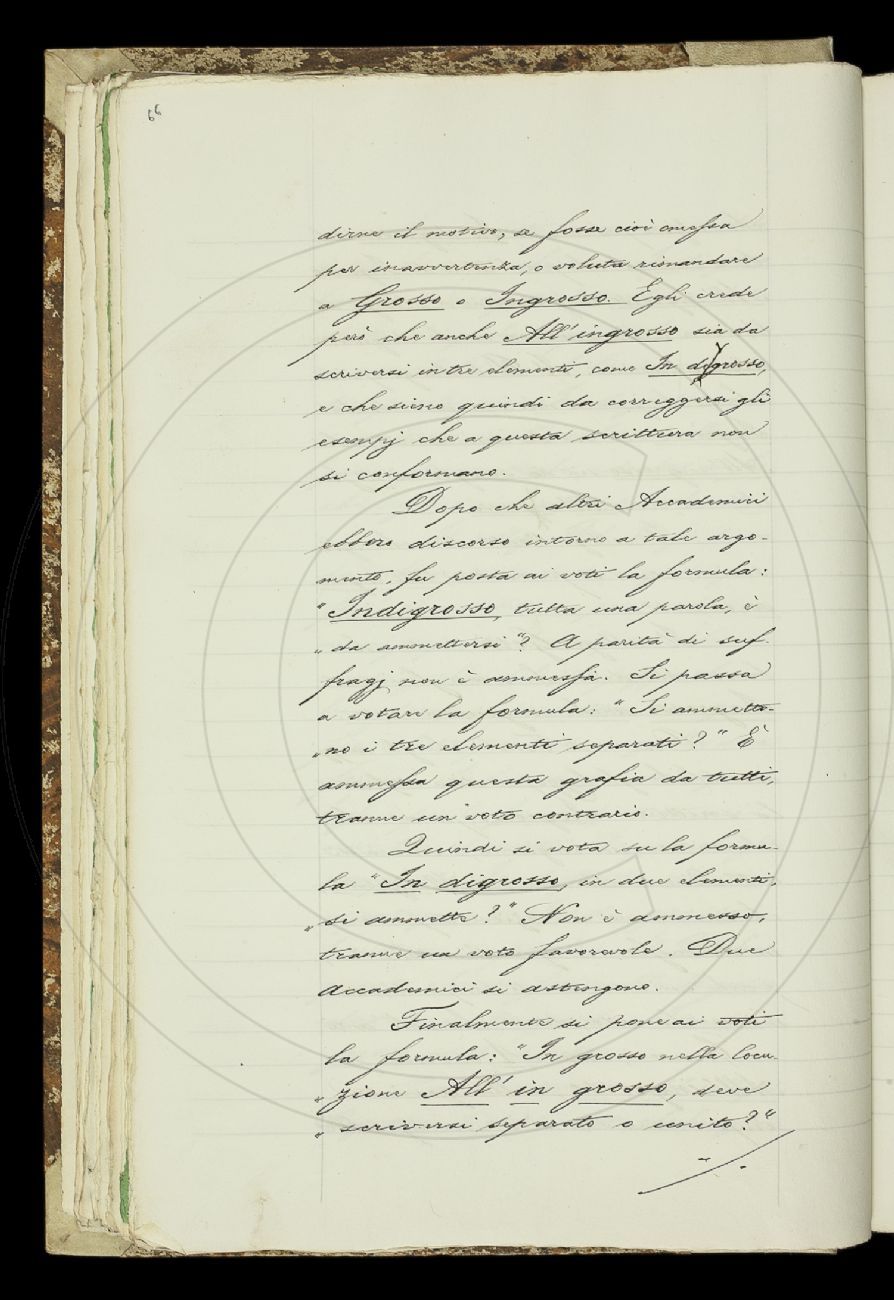 66
dirne il motivo, se fosse cioè omessa
per inavvertenza, o voluta rimandare
a Grosso o Ingrosso. Egli crede
però che anche All'ingrosso sia da
scriversi in tre elementi, come In di grosso,
e che sieno quindi da correggersi gli
esempj che a questa scrittura non
si conformano.
Dopo che altri Accademici
ebbero discorso intorno a tale argo-
mento, fu posta ai voti la formula:
"Indigrosso, tutta una parola, è
„da ammettersi"? A parità di suf-
fragj non è ammessa. Si passa
a votare la formula: "Si ammetto-
„no i tre elementi separati?" È
ammessa questa grafia da tutti,
tranne un voto contrario.
Quindi si vota su la formu-
la "In digrosso, in due elementi,
„si ammette?" Non è ammesso,
tranne un voto favorevole. Due
Accademici si astengono.
Finalmente si pone ai voti
la formula: "In grosso nella locu-
„zione All' in grosso, deve
„scriversi separato o unito?"
./.